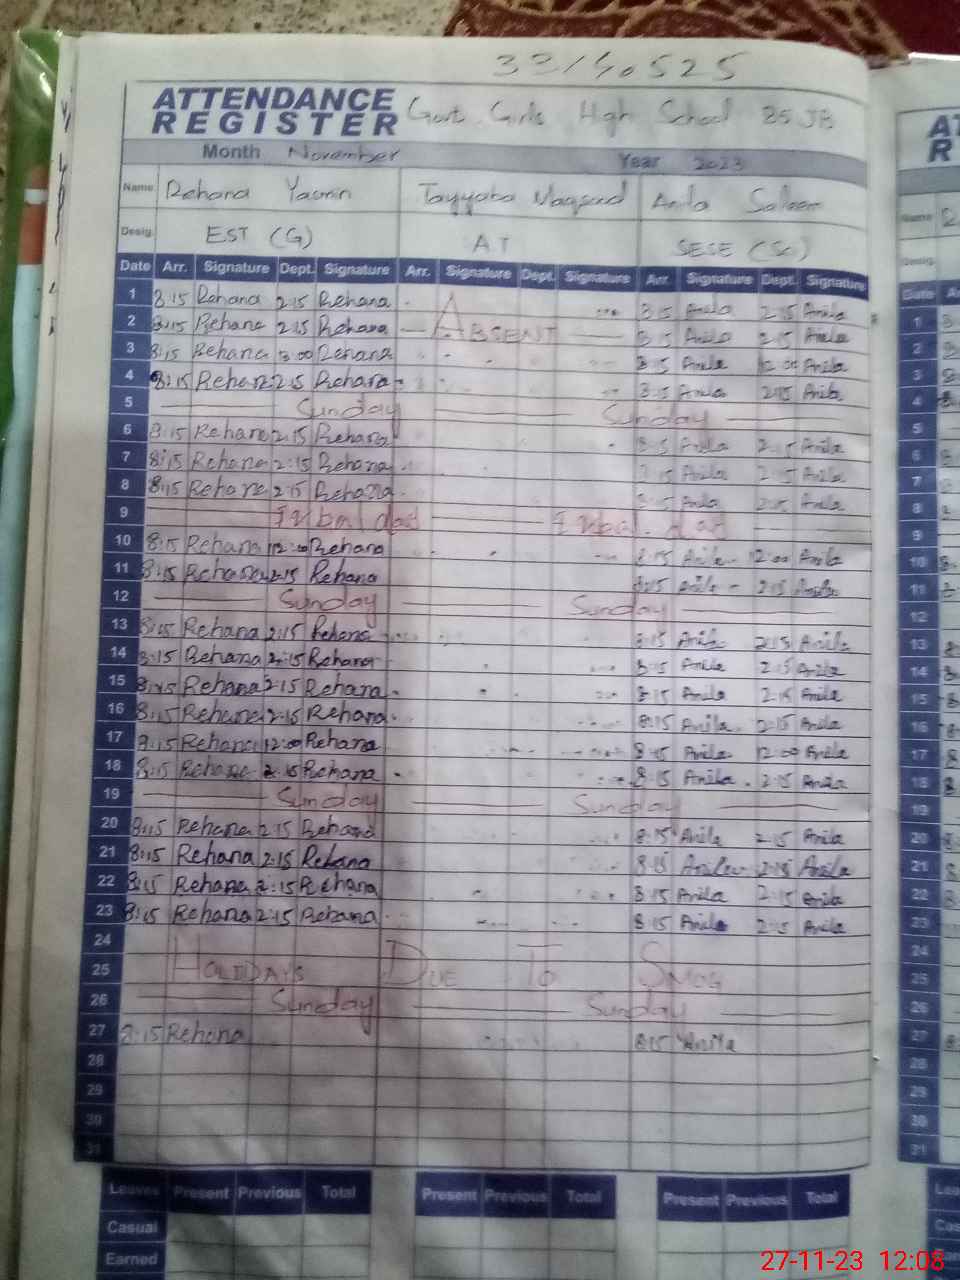 33140525
ATTENDANCE REGISTER Govt. Girls High School 85 JB
Month November Year 2023
Name Rehana Yasmin Tayyaba Maqsood Anila Saleem
Desig. EST (G) AT SESE (Sc)
Date Arr. Signature Dept. Signature Arr. Signature Dept. Signature Arr. Signature Dept. Signature
1 8:15 Rehana 2:15 Rehana 8:15 Anila 2:15 Anila
2 8:15 Rehana 2:15 Rehana ABSENT 8:15 Anila 2:15 Anila
3 8:15 Rehana Rehana 8:15 Anila 12:00 Anila
4 8:15 Rehana 2:15 Rehana 8:15 Anila 2:15 Anila
5 Sunday Sunday
6 8:15 Rehana 2:15 Rehana 8:15 Anila 2:15 Anila
7 8:15 Rehana 2:15 Rehana Anila 2:15 Anila
8 8:15 Rehana 2:15 Rehana 8:15 Anila 2:15 Anila
9 Iqbal day Iqbal day
10 8:15 Rehana 12:00 Rehana 8:15 Anila 12:00 Anila
11 8:15 Rehana 2:15 Rehana 8:15 Anila 2:15 Anila
12 Sunday Sunday
13 8:15 Rehana 2:15 Rehana 8:15 Anila 2:15 Anila
14 8:15 Rehana 2:15 Rehana 8:15 Anila 2:15 Anila
15 8:15 Rehana 2:15 Rehana 8:15 Anila 2:15 Anila
16 8:15 Rehana 2:15 Rehana 8:15 Anila 2:15 Anila
17 8:15 Rehana 12:00 Rehana 8:15 Anila 12:00 Anila
18 8:15 Rehana 2:15 Rehana 8:15 Anila 2:15 Anila
19 Sunday Sunday
20 8:15 Rehana 2:15 Rehana 8:15 Anila 2:15 Anila
21 8:15 Rehana 2:15 Rehana 8:15 Anila 2:15 Anila
22 8:15 Rehana 2:15 Rehana 8:15 Anila 2:15 Anila
23 8:15 Rehana 2:15 Rehana 8:15 Anila 2:15 Anila
24
25 HOLIDAYS DUE TO SMOG
26 Sunday Sunday
27 8:15 Rehana 8:15 Anila
28
29
30
31
Leaves Present Previous Total Present Previous Total Present Previous Total
Casual
Earned
27-11-23 12:08